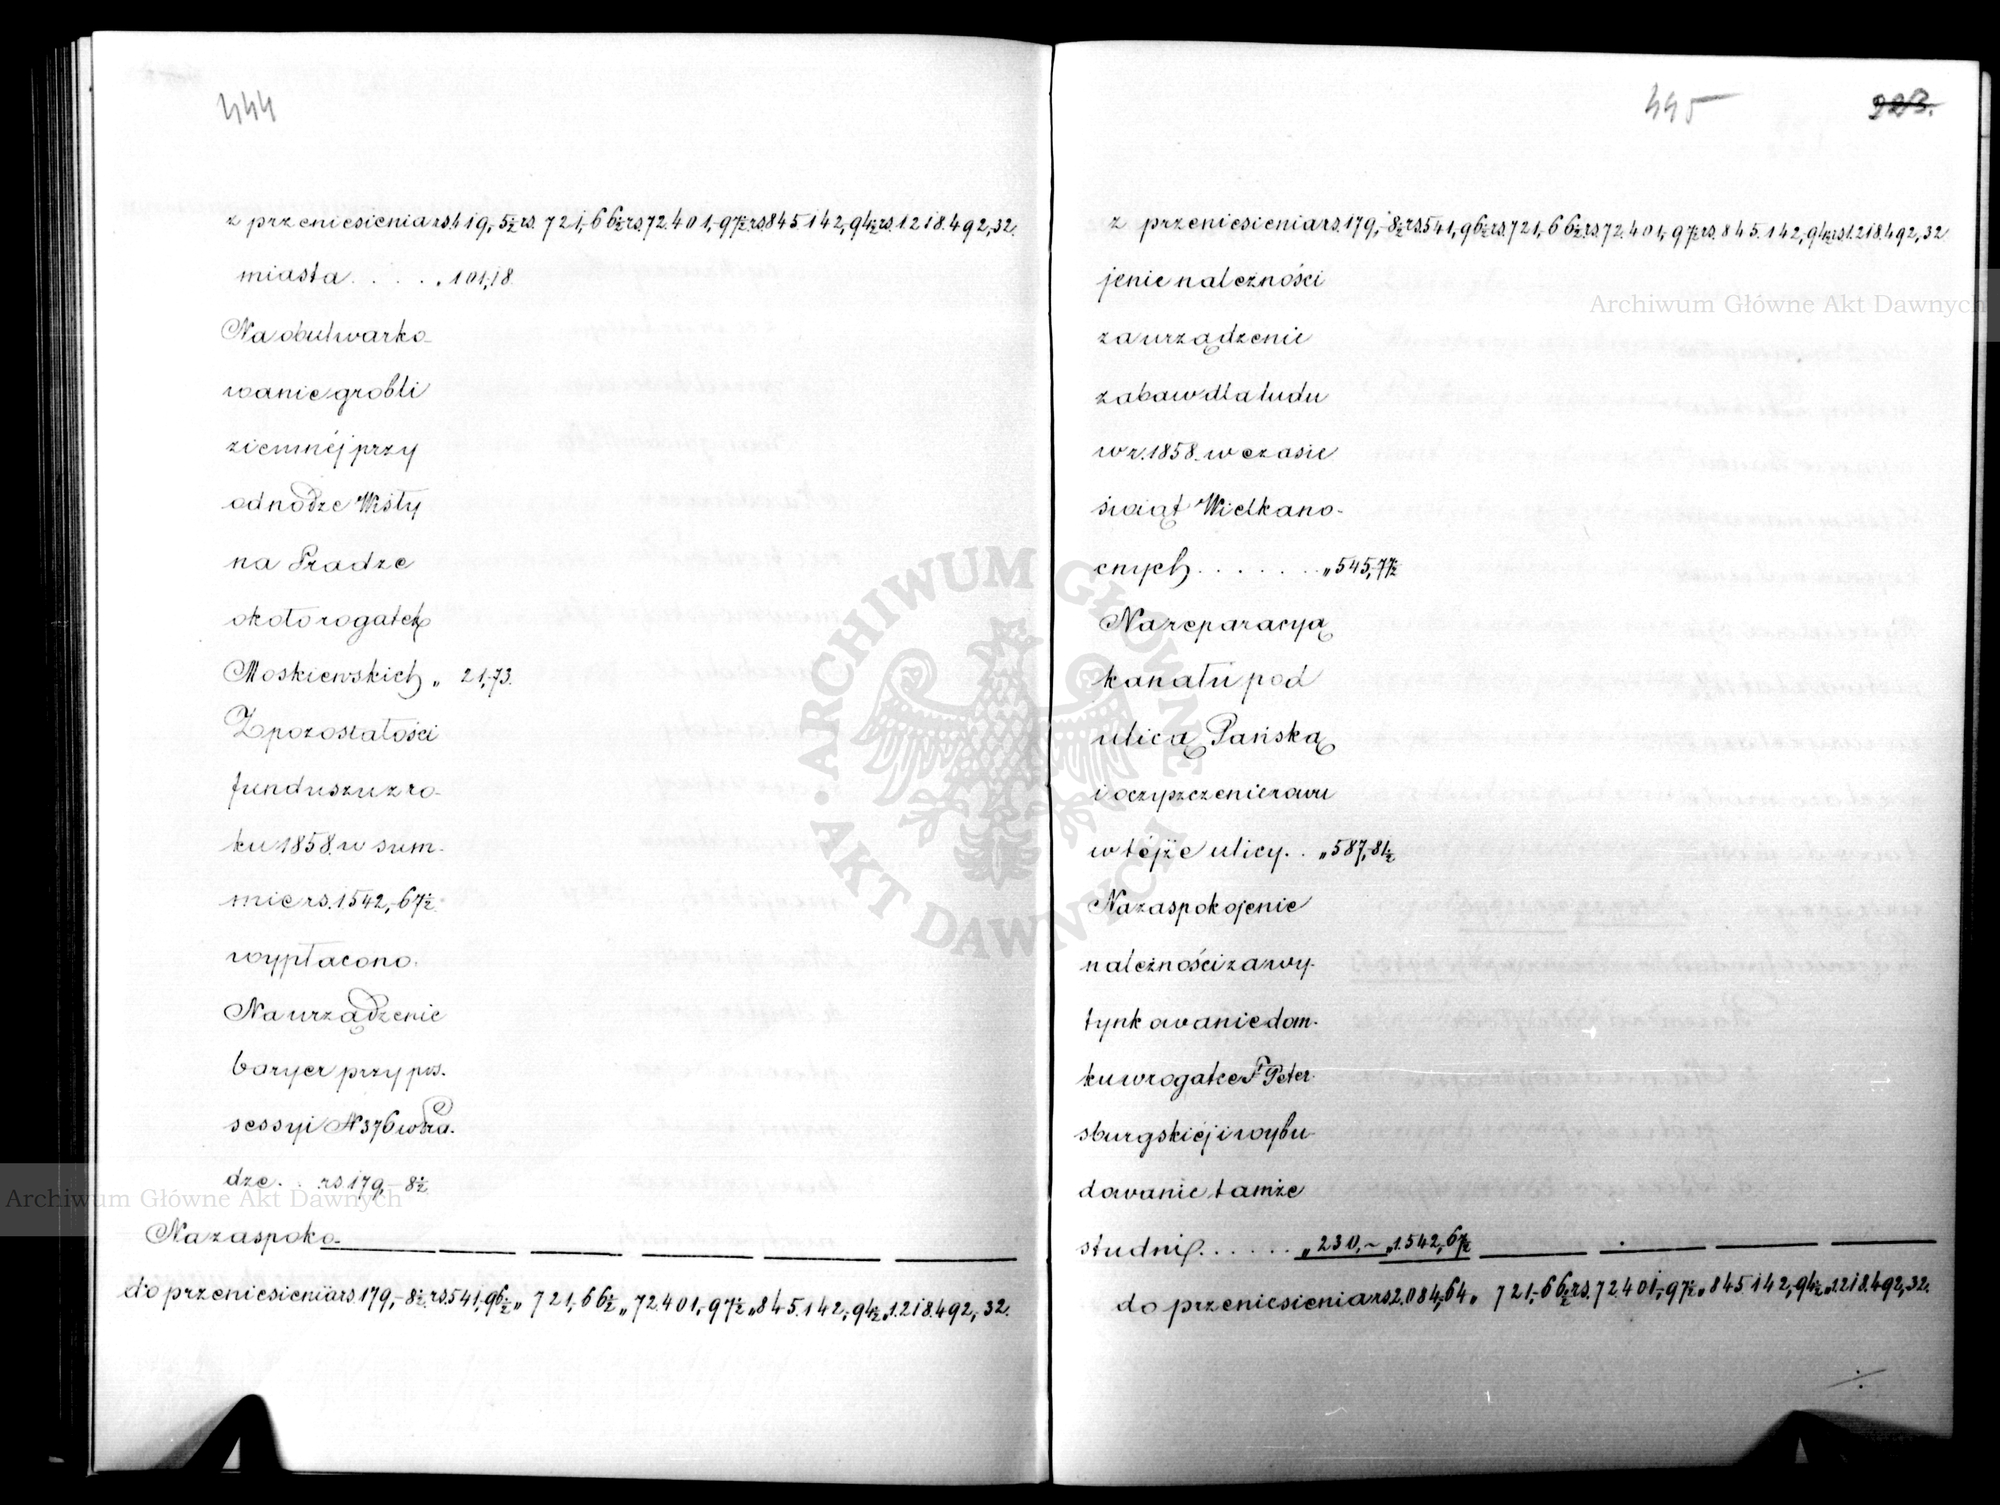 444
z przeniesienia rs. 419,-5½ rs. 721,-66½ rs. 72.401,-97½ rs. 845.142,-94½ rs. 1.218.492,32.
miasta . . . . „ 101,18.
Na obulwarko-
wanie grobli
ziemnéj przy
odnodze Wisły
na Pradze
około rogatek
Moskiewskich „ 21,73.
Z pozostałości
funduszu z ro-
ku 1858. w sum-
mie rs. 1542,-67½
wypłacono.
Na urządzenie
baryer przy pos-
sessyi № 376 w Pra-
dze . . rs 179,-8½
Na zaspoko-
do przeniesienia rs. 179,-8½ rs. 541,96½ „ 721,-66½ „ 72401,-97½ „ 845.142,-94½ „ 1.218.492,32.
445
223.
z przeniesienia rs. 179,-8½ rs. 541,96½ rs. 721,-66½ rs. 72.401,-97½ rs. 845.142,-94½ rs. 1.218.492,32
jenie należności
za urządzenie
zabaw dla ludu
w r. 1858. w czasie
świąt Wielkano-
cnych . . . . . . . „ 545,-77½
Na reparacyą
kanału pod
ulicą Pańską
i oczyszczenie rowu
w téjże ulicy . . „ 587,-81½
Na zaspokojenie
należności za wy-
tynkowanie dom-
ku w rogatce Peter-
sburgskiéj i wybu-
dowanie tamże
studni . . . . . . „ 230,- „ 1.542,67½
do przeniesienia rs. 2.084,64 „ 721,-66½ rs. 72.401,-97½ „ 845.142,-94½ „ 1.218.492,32.
Archiwum Główne Akt Dawnych
Archiwum Główne Akt Dawnych
ARCHIWUM GŁÓWNE AKT DAWNYCH